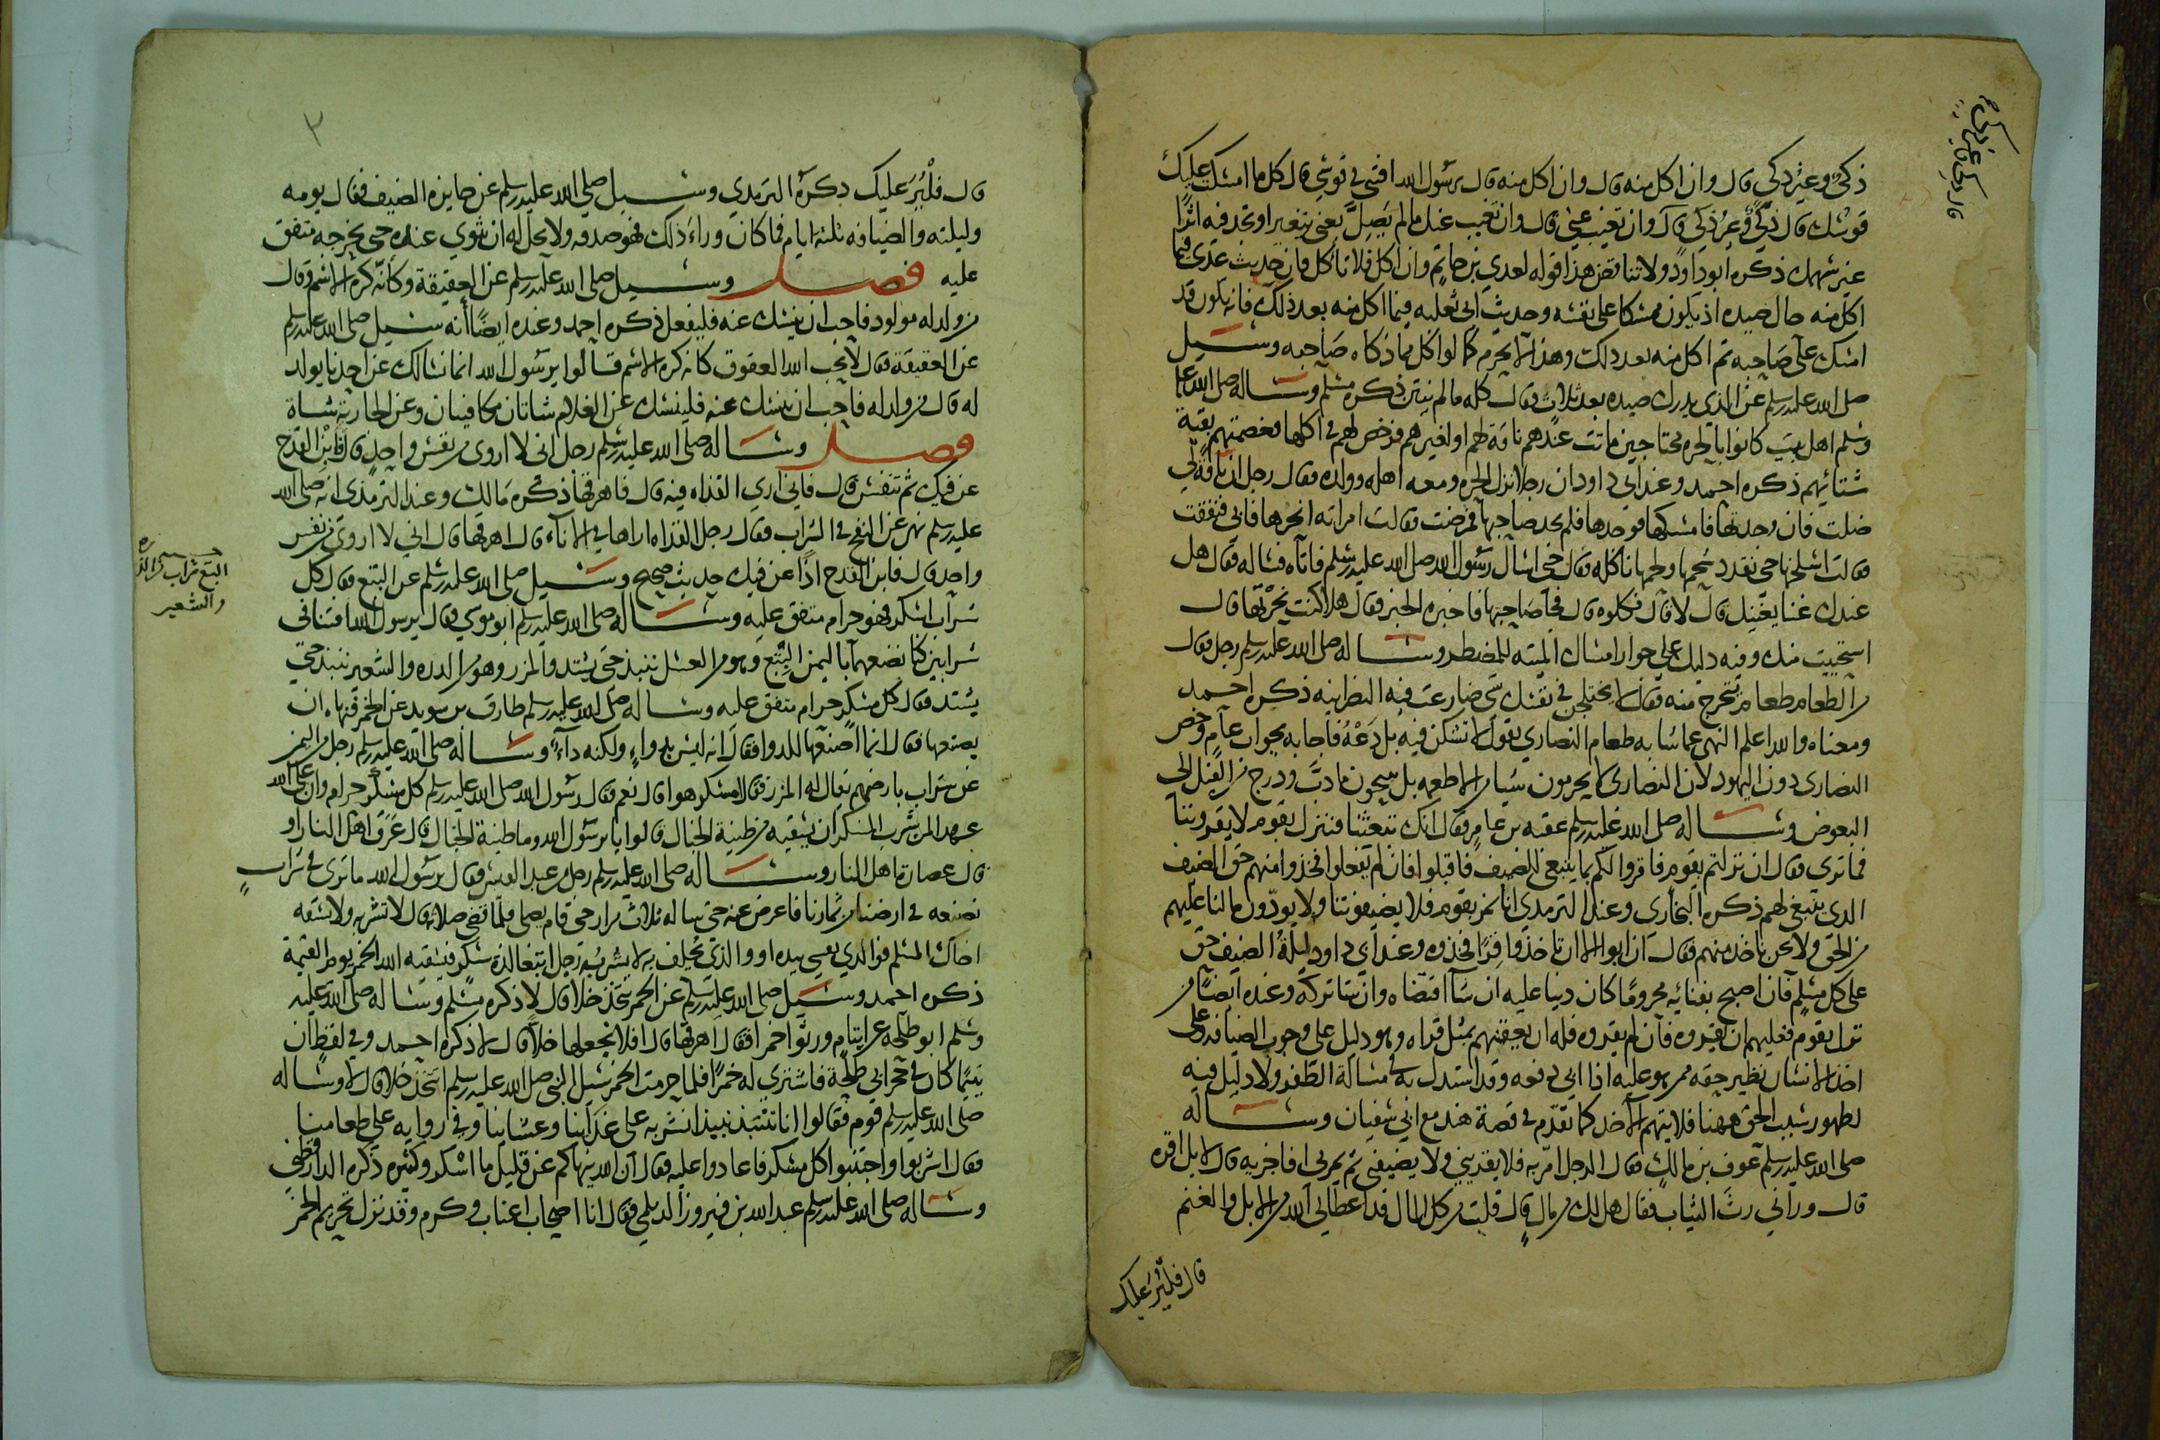 ذكي وغير ذكي قال وان اكل منه قال وان اكل منه قال يرسول الله افتني في قوسي قال كل ما امسك عليك
قوسك قال ذكي وغير ذكي قال وان تغيب عني قال وان تغيب عنك ما لم يصل يعني يتغير او تجد فيه اثرا
غير سهمك ذكره ابو داود ولا تناقض هذا قوله لعدي بن حاتم وان اكل فلا تاكل فان حديث عدي فيما
اكل منه حال صيده اذ يكون ممسكا على نفسه وحديث ابي ثعلبه فيما اكل منه بعد ذلك فانه يكون قد
امسك على صاحبه ثم اكل منه بعد ذلك وهذا لا يحرم كما لو اكل مما ذكاه صاحبه وسيل
صلى الله عليه وسلم عن الذي يدرك صيده بعد ثلاث فقال كله ما لم ينتن ذكره مسلم وساله صلى الله عليه
وسلم اهل بيت كانوا بالحره محتاجين ماتت عندهم ناقة لهم او لغيرهم فرخص لهم في اكلها فعصمتهم بقية
شتائهم ذكره احمد وعند ابي داود ان رجلا نزل الحره ومعه اهله وولده فقال رجل ان ناقة لي
ضلت فان وجدتها فامسكها فوجدها فلم يجد صاحبها فمرضت فقالت امراته انحرها فابى فنفقت
فقالت اسلخها حتى نقدد شحمها ولحمها ناكله فقال حتى اسال رسول الله صلى الله عليه وسلم فاتاه فساله فقال هل
عندك غنا يغنيك قال لا قال فكلوه قال فجا صاحبها فاخبره الخبر فقال هلا كنت نحرتها قال
استحييت منك وفيه دليل على جواز امساك الميته للمضطر وساله صلى الله عليه وسلم رجل فقال
من الطعام طعام نتحرج منه فقال لا يختلجن في نفسك شي ضارعت فيه النصرانيه ذكره احمد
ومعناه والله اعلم النهي عما شابه طعام النصارى يقول لا تشكن فيه بل دعه فاجابه بجواب عام وخص
النصارى دون اليهود لان النصارى لا يحرمون شيا من الاطعمه بل يبيحون ما دب ودرج من الفيل الى
البعوض وساله صلى الله عليه وسلم عقبه بن عامر فقال انك تبعثنا فننزل بقوم لا يقروننا
فما ترى فقال ان نزلتم بقوم فامروا لكم بما ينبغي للضيف فاقبلوا فان لم يفعلوا فخذوا منهم حق الضيف
الذي ينبغي لهم ذكره البخاري وعند الترمذي انا نمر بقوم فلا يضيفوننا ولا يودون ما لنا عليهم
من الحق ولا نحن ناخذ منهم فقال ان ابوا الا ان تاخذوا قرا فخذوه وعند ابي داود ليلة الضيف حق
على كل مسلم فان اصبح بفنائه محروما كان دينا عليه ان شا اقتضاه وان شا تركه وعنده ايضا من
نزل بقوم فعليهم ان يقروه فان لم يقروه فله ان يعقبهم بمثل قراه وهو دليل على وجوب الضيافه وعلى
اخذ الانسان نظير حقه ممن هو عليه اذا ابى دفعه وقد استدل به في مسالة الظفر ولا دليل فيه
لظهور سبب الحق ههنا فلا يتهم الآخذ كما تقدم في قصة هند مع ابي سفيان وساله
صلى الله عليه وسلم عوف بن مالك فقال الرجل امر به فلا يقريني ولا يضيفني ثم يمر بي افاجزيه قال لا بل اقره
قال وراني رث الثياب فقال هل لك من مال قال قلت من كل المال قد اعطاني الله من الابل والغنم
قال فلير عليك
٣
قال فلير عليك ذكره الترمذي وسيل صلى الله عليه وسلم عن جايزه الضيف فقال يومه
وليلته والضيافه ثلثة ايام فما كان وراء ذلك فهو صدقه ولا يحل له ان يثوي عنده حتى يخرجه متفق
عليه فصل وسيل صلى الله عليه وسلم عن العقيقة وكأنه كره الاسم وقال
من ولد له مولود فاحب ان ينسك عنه فليفعل ذكره احمد وعنده ايضا أنه سيل صلى الله عليه وسلم
عن العقيقة فقال لا يحب الله العقوق كانه كره الاسم قالوا يرسول الله انما نسالك عن احدنا يولد
له قال من ولد له فاحب ان ينسك عنه فلينسك عن الغلام شاتان مكافيتان وعن الجارية شاة
فصل وساله صلى الله عليه وسلم رجل اني لا اروى من نفس واحد قال فابن القدح
عن فيك ثم تنفس قال فاني ارى القذاه فيه قال فاهرقها ذكره مالك وعند الترمذي انه صلى الله
عليه وسلم نهى عن النفخ في الشراب فقال رجل القذاه اراها في الاناء قال اهرقها قال اني لا اروى من نفس
واحد قال فابن القدح اذا عن فيك حديث صحيح وسيل صلى الله عليه وسلم عن البتع فقال كل
شراب اسكر فهو حرام متفق عليه وساله صلى الله عليه وسلم ابو موسي فقال يرسول الله افتنا في
شرابين كنا نصنعهما باليمن البتع وهو من العسل ننبذ حتى يشتد والمزر وهو من الذره والشعير ننبذ حتى
يشتد فقال كل مسكر حرام متفق عليه وساله صلى الله عليه وسلم طارق بن سويد عن الخمر فنهاه ان
يصنعها فقال انما اصنعها للدوا فقال انه ليس بدواء ولكنه داء وساله صلى الله عليه وسلم رجل من اليمن
عن شراب بارضهم يقال له المزر فقال امسكر هو قال نعم فقال رسول الله صلى الله عليه وسلم كل مسكر حرام وان على الله
عهدا لمن شرب المسكر ان يسقيه من طينة الخبال قالوا يا رسول الله وما طينة الخبال قال عرق اهل النار او
قال عصارة اهل النار وساله صلى الله عليه وسلم رجل من عبد القيس فقال يرسول الله ما ترى في شراب
نصنعه في ارضنا من ثمارنا فاعرض عنه حتى ساله ثلاث مرار حتى قام يصلي فلما قضى صلاته قال لا تشربه ولا تسقه
اخاك المسلم فوالذي نفسي بيده او والذي يحلف به لا يشربه رجل ابتغا لذة سكر فيسقيه الله الخمر يوم القيمة
ذكره احمد وسيل صلى الله عليه وسلم عن الخمر تتخذ خلا قال لا ذكره مسلم وساله صلى الله عليه
وسلم ابو طلحه عن ايتام ورثوا خمرا فقال اهرقها قال افلا نجعلها خلا قال لا ذكره احمد وفي لفظ ان
يتيما كان في حجر ابي طلحة فاشترى له خمرا فلما حرمت الخمر سيل النبي صلى الله عليه وسلم اتتخذ خلا قال لا وساله
صلى الله عليه وسلم قوم فقالوا انا ننتبذ نبيذا نشربه على غدائنا وعشائنا وفي روايه على طعامنا
فقال اشربوا واجتنبوا كل مسكر فاعادوا عليه فقال ان الله ينهاكم عن قليل ما اسكر وكثيره ذكره الدارقطني
وساله صلى الله عليه وسلم عبد الله بن فيروز الديلمي فقال انا اصحاب اعناب وكرم وقد نزل تحريم الخمر
البتع شراب
والشعير